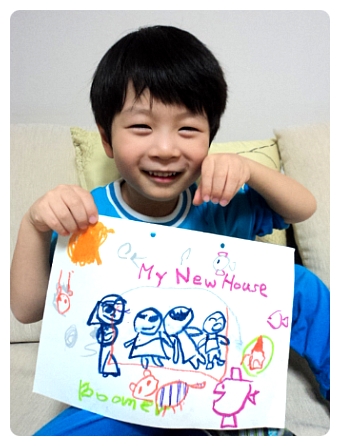 My New House
Boomer